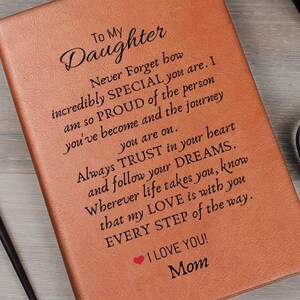 To My
Daughter
Never Forget how
incredibly SPECIAL you are. I
am so PROUD of the person
you've become and the journey
you are on.
Always TRUST in your heart
and follow your DREAMS.
Wherever life takes you, know
that my LOVE is with you
EVERY STEP of the way.
I LOVE YOU!
Mom